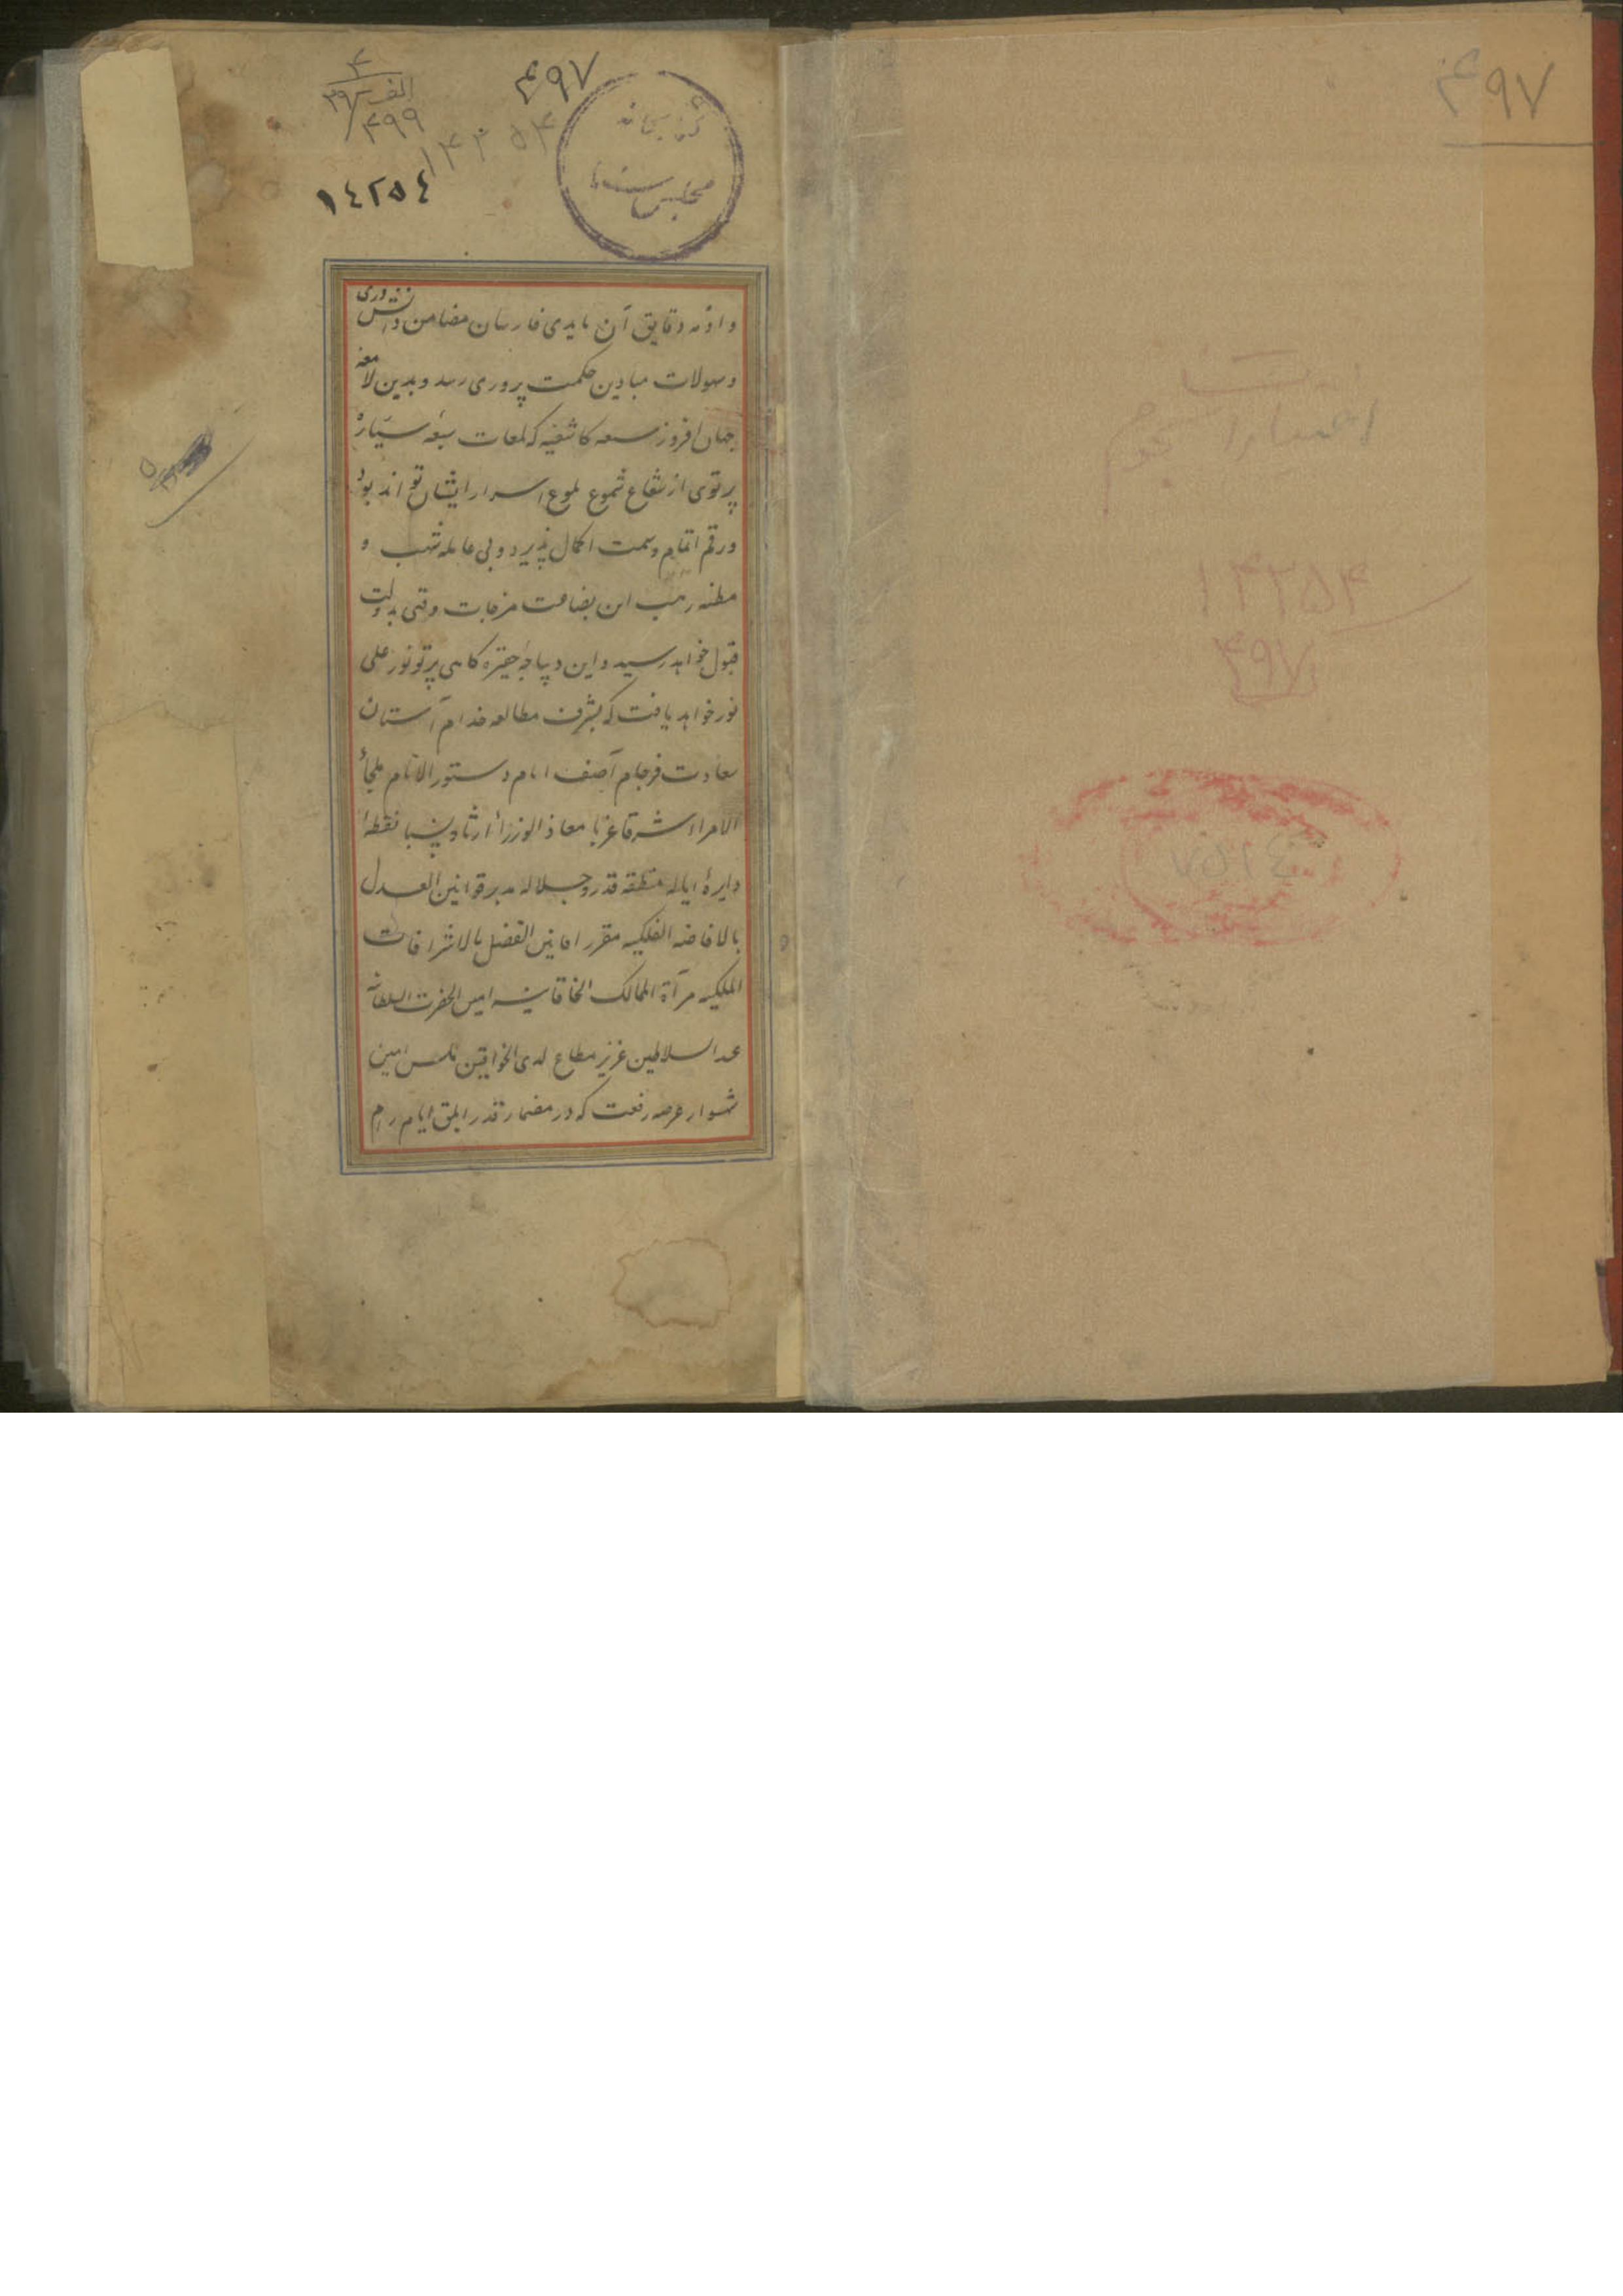 ۴۹۷
۱۴۲۵۴
۴۹۷
۴۹۷
کتابخانه
مجلس سنا
۴
الف
۳۹
۴۹۹
۱۴۲۵۴
١٤٢٥٤
و ازمه دقایق آن بایدی فارسان مضامن دانش وری
و سهولات میادین حکمت پروری رسد و بدین لامعه
جهان افروز سبعه کاشفیه که لمعات سبعه سیاره
پرتوی از شعاع شموع لموع اسرار ایشان تواند بود
و رقم اتمام و سمت اکمال پذیرد و بی عایله شب و
مظنه ریب این بضاعت مزجات وقتی بدولت
قبول خواهد رسید و این دیباجه حقیره گاهی پرتو نور علی
نور خواهد یافت که بشرف مطالعه خدام آستان
سعادت فرجام آصف ایام دستور الانام ملجأ
الامراء شرقا غربا معاذ الوزراء ارثا و نسبا نقطه
دایرهٔ ایاله منطقه قدر و جلاله مدبر قوانین العدل
بالافاضه الفلکیه مقرر افانین الفضل بالاشراقات
الملکیه مرآة الممالک الخاقانیه امین الحضرت السلطانیه
عند السلاطین عزیز مطاع لدی الخواقین مکین امین
شهسوار عرصه رفعت که در مضمار قدر ابلق ایام رام